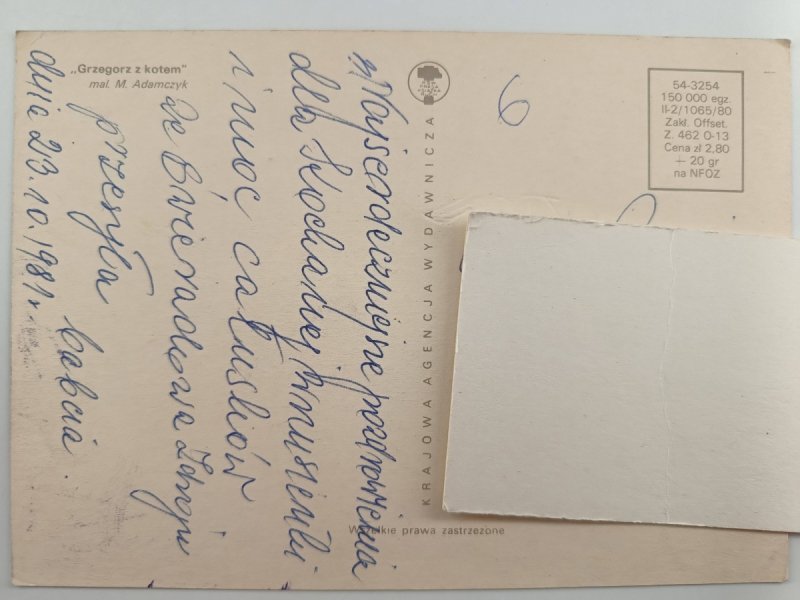 „Grzegorz z kotem”
mal. M. Adamczyk
Najserdeczniejsze pozdrowienia
dla Kochanej Wnusieńki
i moc całusków
ze Świeradowa Zdroju
przesyła babcia
dnia 23.10.1981r.
KRAJOWA AGENCJA WYDAWNICZA
Wszelkie prawa zastrzeżone
6
54-3254
150 000 egz.
II-2/1065/80
Zakł. Offset.
Z. 462 0-13
Cena zł 2,80
+ 20 gr
na NFOZ